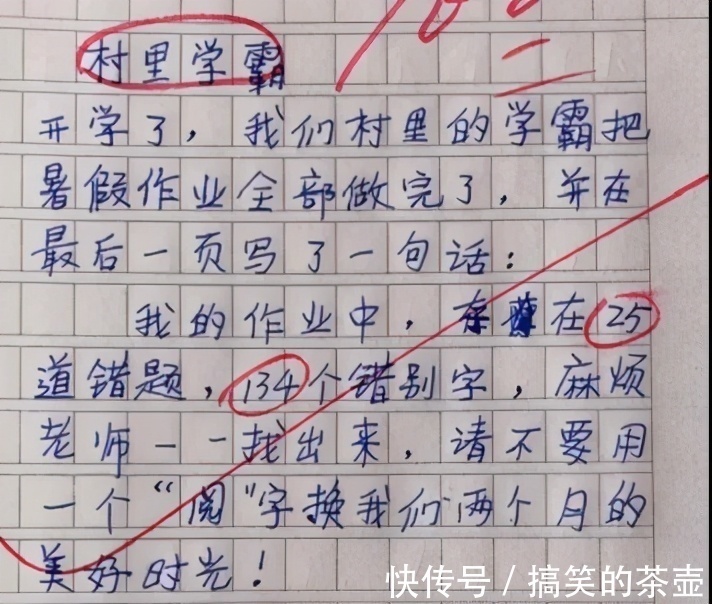 村里学霸
开学了，我们村里的学霸把
暑假作业全部做完了，并在
最后一页写了一句话：
我的作业中，存在25
道错题，134个错别字，麻烦
老师一一找出来，请不要用
一个“阅”字换我们两个月的
美好时光！
快传号/搞笑的茶壶